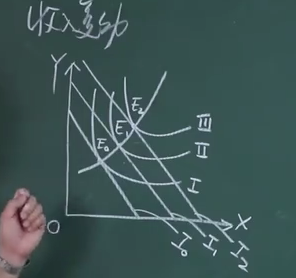 收入变动
Y
E₂
E₁
E₀
III
II
I
X
O
I₀
I₁
I₂